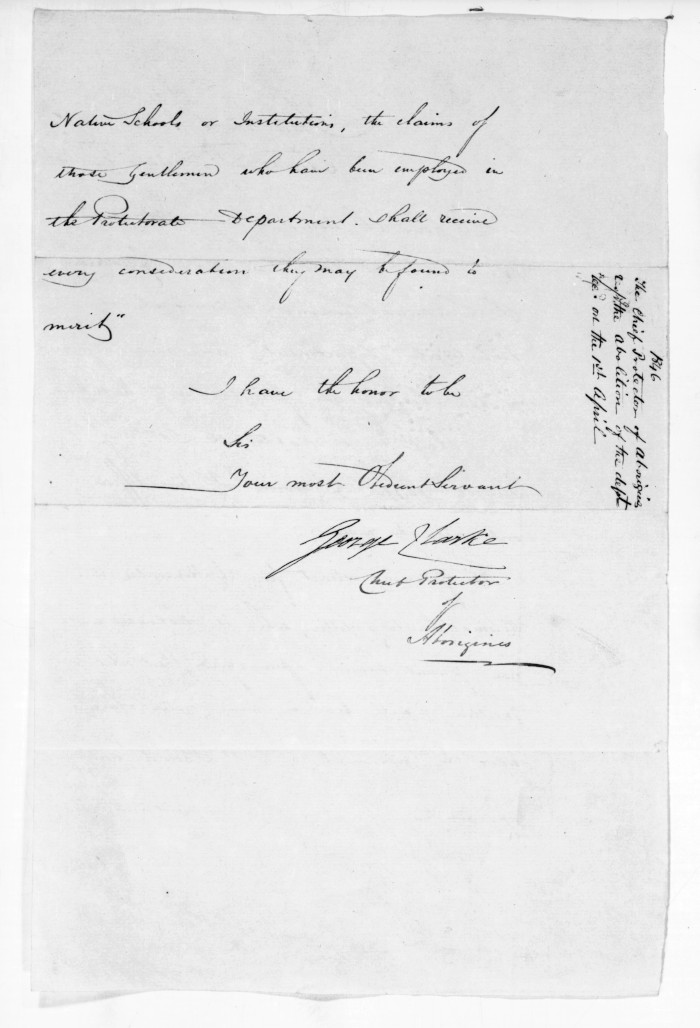 Native Schools or Institutions, the claims of
those Gentlemen who have been employed in
the Protectorate Department. shall receive
every consideration they may be found to
merit"
I have the honor to be
Sir
Your most Obedient Servant
George Clarke
Chief Protector
of
Aborigines
1846
The Chief Protector of Aborigines
the abolition of the dept
Rec.d on the 1st April